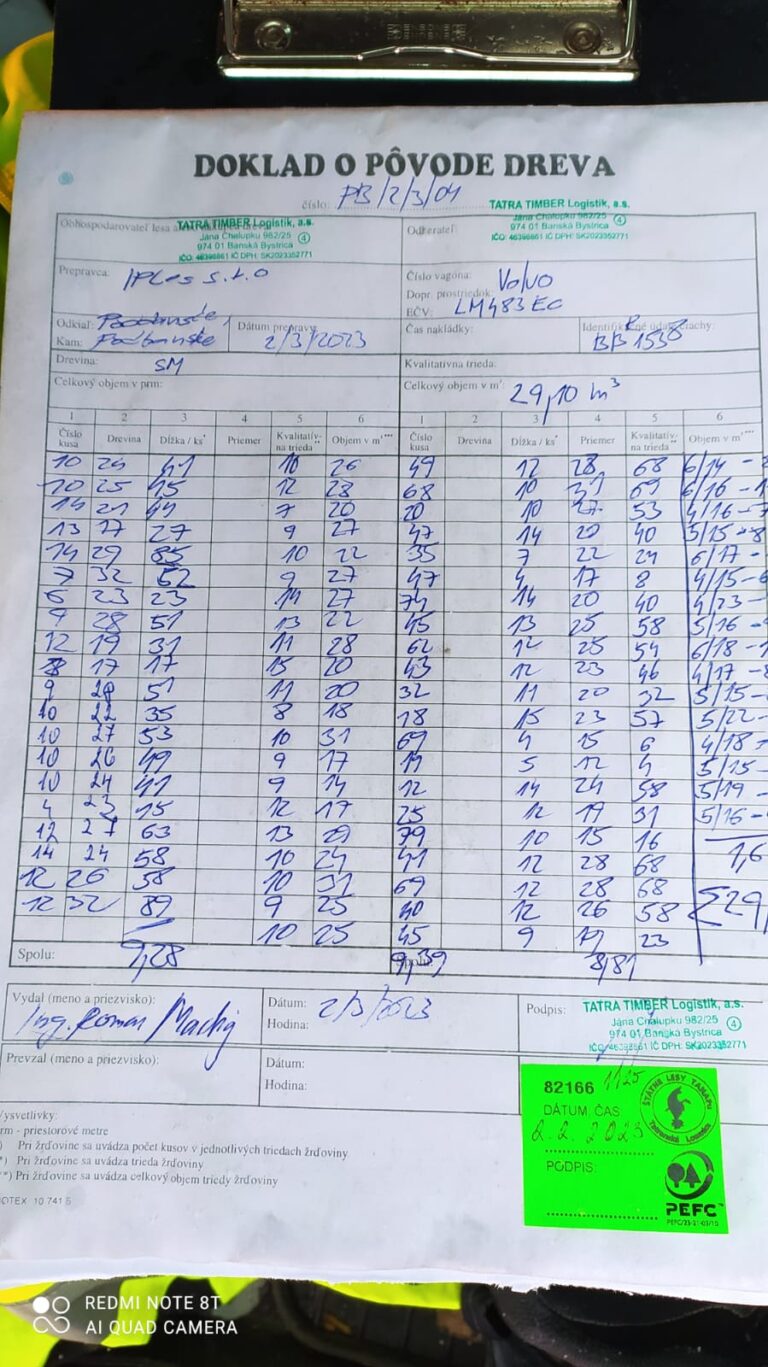 DOKLAD O PÔVODE DREVA
číslo: PB/2/3/01
TATRA TIMBER Logistik, a.s.
Jána Chalupku 982/25
974 01 Banská Bystrica
IČO: 46398861 IČ DPH: SK2023352771
Obhospodarovateľ lesa
Odberateľ:
TATRA TIMBER Logistik, a.s.
Jána Chalupku 982/25
974 01 Banská Bystrica
IČO: 46398861 IČ DPH: SK2023352771
4
4
Prepravca: IPLes s.r.o
Číslo vagóna: Volvo
Dopr. prostriedok:
EČV: LM483EC
Odkiaľ: Podbanské,
Kam: Podbanské
Dátum prepravy: 2/3/2023
Čas nakládky:
BB 1538
Drevina: SM
Kvalitatívna trieda:
Celkový objem v prm:
Celkový objem v m³: 29,10 m³
1 2 3 4 5 6 1 2 3 4 5 6
Číslo kusa Drevina Dĺžka / ks* Priemer Kvalitatív- na trieda Objem v m³*** Číslo kusa Drevina Dĺžka / ks* Priemer Kvalitatív- na trieda Objem v m³***
10 24 41 10 26 49 12 28 68 6/14 -
10 25 45 12 28 68 10 31 69 6/16 - 1
14 21 44 7 20 20 10 27 53 4/16 - 7
13 17 27 9 27 47 14 20 40 5/15 - 8
14 29 85 10 22 35 7 22 24 6/17 -
7 32 52 9 27 47 4 17 8 4/15 - 6
6 23 23 14 27 74 14 20 40 4/23 -
9 28 51 13 22 45 13 25 58 5/16 -
12 19 31 11 28 62 12 25 54 6/18 - 1
17 17 15 20 43 12 23 46 4/17 -
9 28 51 11 20 32 11 20 32 5/15 -
10 22 35 8 18 18 15 23 57 5/22 -
10 27 53 10 31 69 4 15 6 4/18 -
10 26 49 9 17 19 5 12 4 5/15 -
10 24 41 9 14 12 14 24 58 5/19 -
4 23 15 12 17 25 12 19 31 5/16 -
12 27 63 13 29 79 10 15 16
14 24 58 10 24 41 12 28 68 1,6
12 26 58 10 31 69 12 28 68
12 32 89 9 25 40 12 26 58 Σ29,
10 25 45 9 19 23
Spolu: 9,28 9,39 8,81
Vydal (meno a priezvisko):
Ing. Roman
Dátum: 2/3/2023
Hodina:
Podpis:
TATRA TIMBER Logistik, a.s.
Jána Chalupku 982/25
974 01 Banská Bystrica
IČO: 46398861 IČ DPH: SK2023352771
4
Prevzal (meno a priezvisko):
Dátum:
Hodina:
82166 1125
DÁTUM, ČAS
2.2.2023
PODPIS:
ŠTÁTNE LESY TANAPu
Tatranská Lomnica
PEFC™
PEFC/23-21-03/10
Vysvetlivky:
rm - priestorové metre
) Pri žrďovine sa uvádza počet kusov v jednotlivých triedach žrďoviny
*) Pri žrďovine sa uvádza trieda žrďoviny
**) Pri žrďovine sa uvádza celkový objem triedy žrďoviny
OTEX 10 741 5
REDMI NOTE 8T
AI QUAD CAMERA